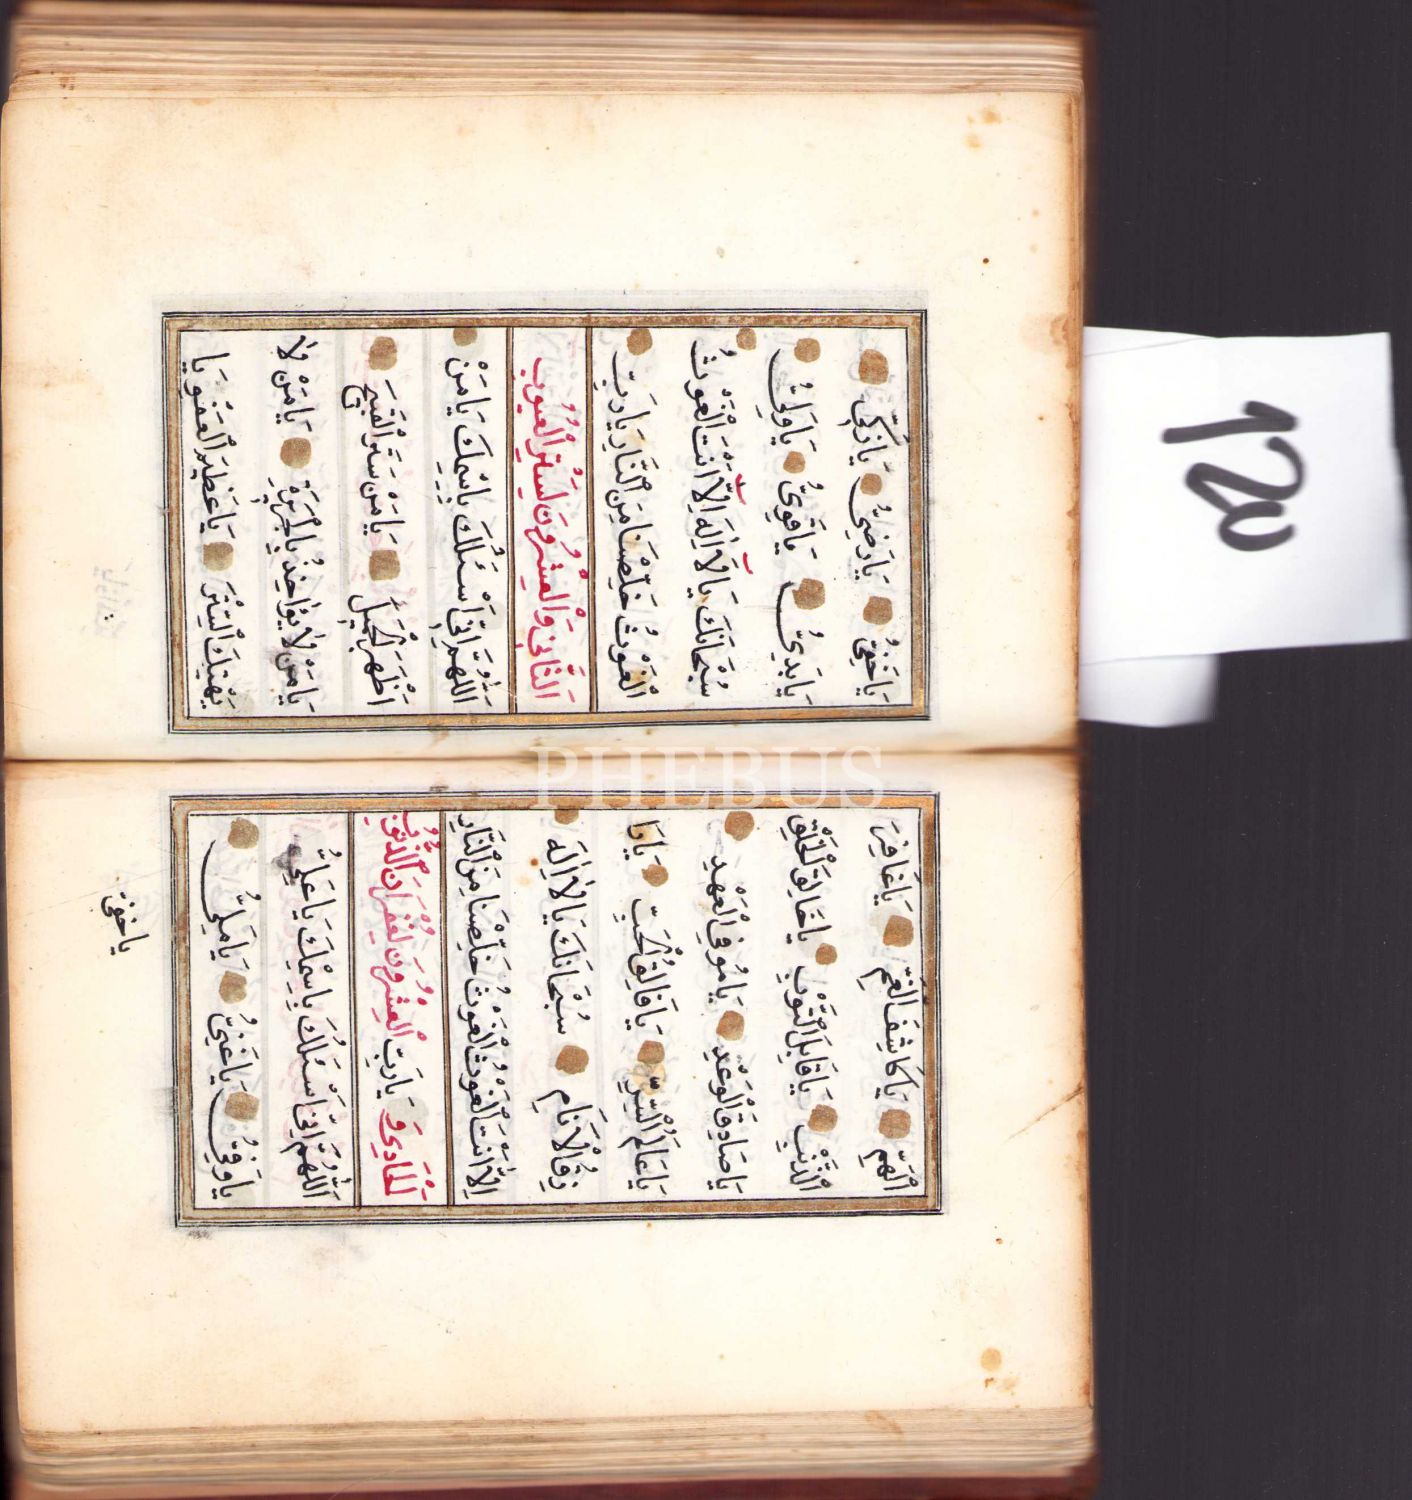 اَلْهَمِّ يَا كَاشِفَ الْغَمِّ يَا غَافِرَ
الذَّنْبِ يَا قَابِلَ التَّوْبِ يَا خَالِقَ الْخَلْقِ
يَا صَادِقَ الْوَعْدِ يَا مُوفِيَ الْعَهْدِ
يَا عَالِمَ السِّرِّ يَا فَالِقَ الْحَبِّ يَا رَا
زِقَ الْاَنَامِ سُبْحَانَكَ يَا لَا اِلٰهَ
اِلَّا اَنْتَ الْغَوْثُ الْغَوْثُ خَلِّصْنَا مِنَ النَّارِ
اَلْحَادِي وَ يَا رَبِّ الْعِشْرُونَ لِغُفْرَانِ الذُّنُوبِ
اَللّٰهُمَّ اِنِّي اَسْئَلُكَ بِاسْمِكَ يَا عَلِيُّ
يَا وَفِيُّ يَا غَنِيُّ يَا مَلِيُّ
يا حفي
يَا حَفِيُّ يَا رَضِيُّ يَا زَكِيُّ
يَا بَدِيُّ يَا قَوِيُّ يَا وَلِيُّ
سُبْحَانَكَ يَا لَا اِلٰهَ اِلَّا اَنْتَ الْغَوْثُ
الْغَوْثُ خَلِّصْنَا مِنَ النَّارِ يَا رَبِّ
اَلثَّانِي وَالْعِشْرُونَ لِسَتْرِ الْعُيُوبِ
اَللّٰهُمَّ اِنِّي اَسْئَلُكَ بِاسْمِكَ يَا مَنْ
اَظْهَرَ الْجَمِيلَ يَا مَنْ سَتَرَ الْقَبِيحَ
يَا مَنْ لَا يُؤَاخِذُ بِالْجَرِيرَةِ يَا مَنْ لَا
يَهْتِكُ السِّتْرَ يَا عَظِيمَ الْعَفْوِ يَا
PHEBUS
120